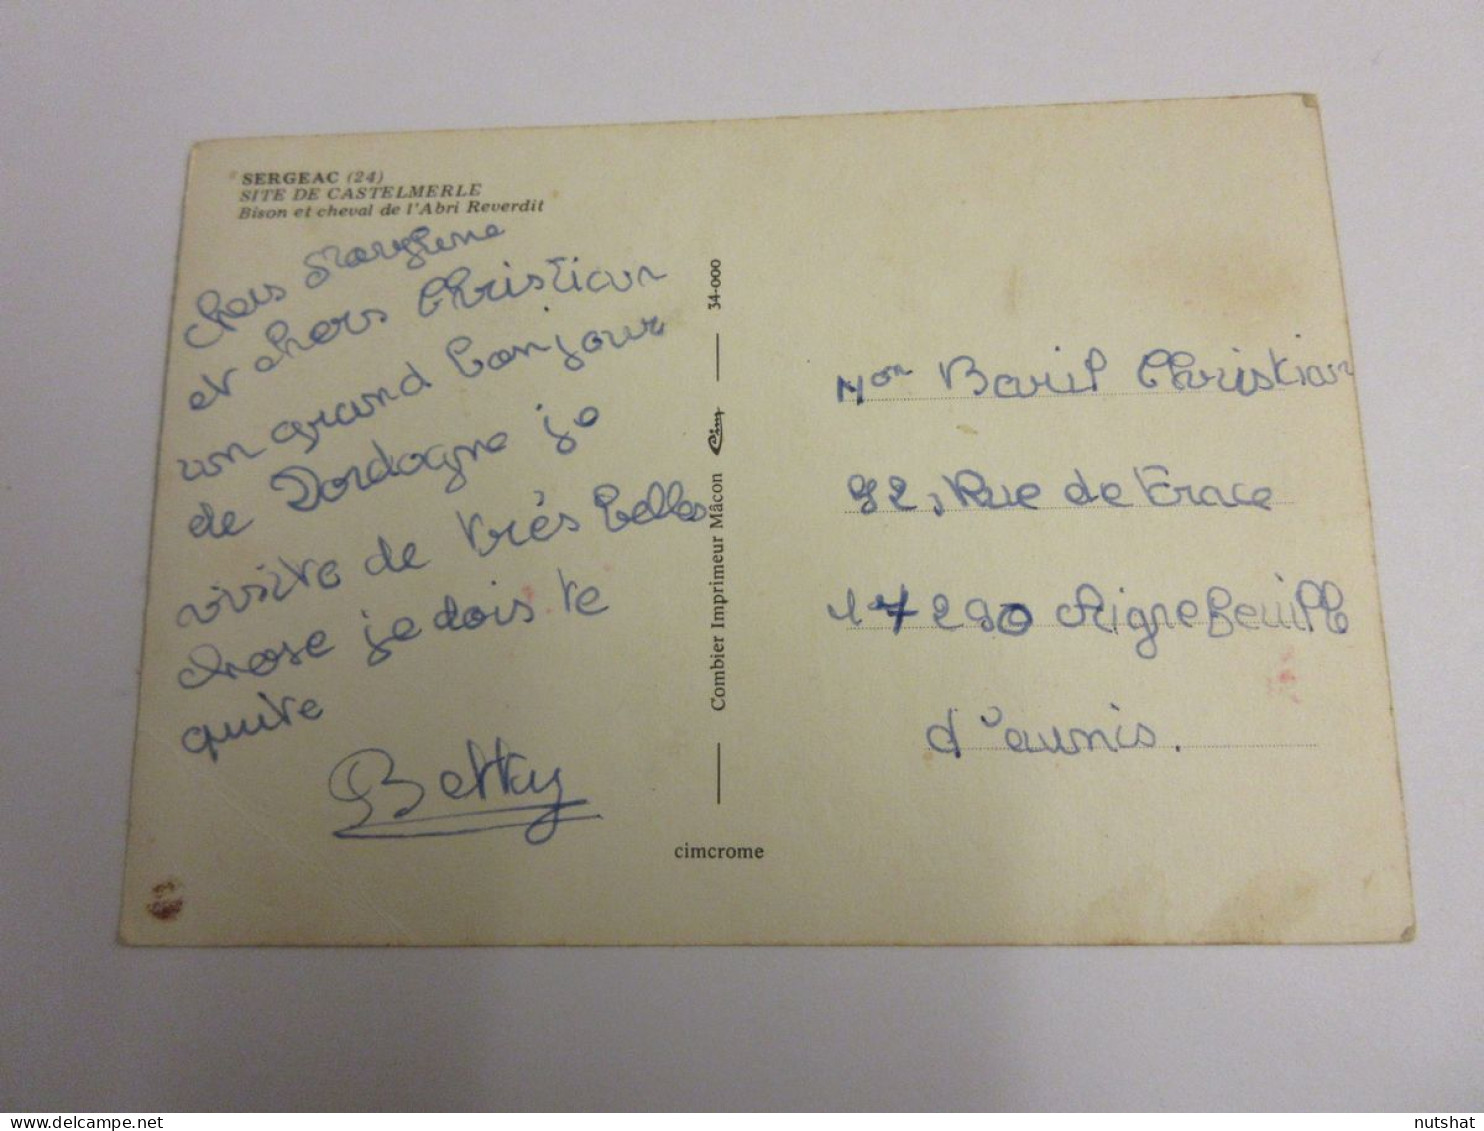 SERGEAC (24)
SITE DE CASTELMERLE
Bison et cheval de l'Abri Reverdit
chers Marylene
et chers Christian
un grand bonjour
de Dordogne je
visite de très belles
chose je dois te
quite
Betty
34-000
Cim
Combier Imprimeur Mâcon
cimcrome
Mon Baril Christian
92, Rue de Frace
17290 Aigrefeuille
d'aunis.
www.delcampe.net
nutshat